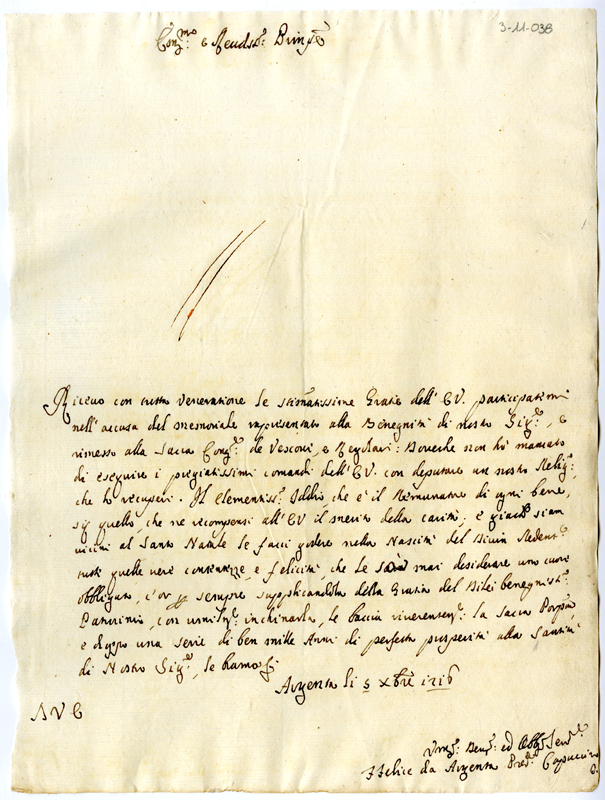 3-11-038
Em.mo e Reudss.o Prin.pe
Riceuo con tutta veneratione le stimatissime Gratie dell' E V. participatemi
nell' accusa del memoriale rapresentato alla Benegnità di nostro Sig.re, e
rimesso alla Sacra Cong.e de Vescoui, e Regolari: Doueche non hò mancato
di eseguire i pregiatissimi comandi dell' E V. con deputare un nostro Relig.o
che lo recuperi. Il clementiss.o Iddio che è il Remuneratore di ogni bene,
sij quello, che ne recompensi all' E V il merito della carità; e giache siam
vicini al Santo Natale le facci godere nella Nascita del Diuin Redent.e
tutte quelle vere contentezze, e felicità che le sà mai desiderare uno cuore
obbligato, e supplicandola della Gratia del benegniss.o
Patrocinio, con umil.mo inchinarla, le baccio riuerentem.e la Sacra Porpora
e doppo una serie di ben mille Anni di perfetta prosperità alla Santità
di Nostro Sig.re, le bramo
Argenta li 5 Xbre 1716
A V E
Umil.mo Deu.mo ed Obb.mo Seru.e
F Felice da Argenta Pred.e Capuccino